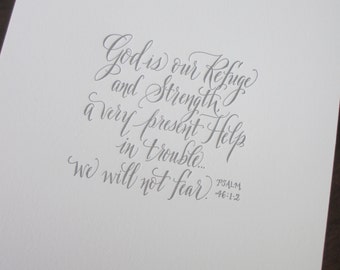 God is our Refuge
and Strength,
a very present Help
in trouble...
we will not fear. PSALM
46:1-2